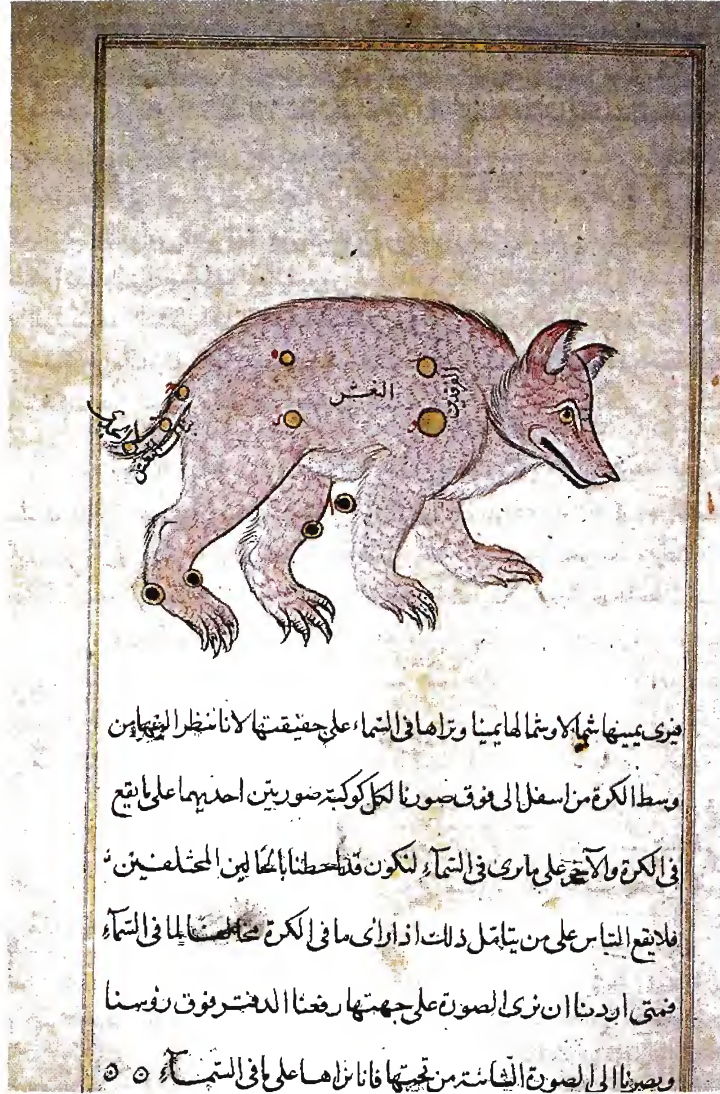 النعش
الفرقدين
بنات نعش
فيرى يمينها شمالا وشمالها يمينا ونراها فى السماء على حقيقتها لانا ننظر اليها من
وسط الكرة من اسفل الى فوق صورنا لكل كوكبة صورتين احديهما على ما يقع
فى الكرة والآخر على ما يرى فى السّمآء لتكون قد احطنا بالحالين المختلفين
فلا يقع التباس على من يتامّل ذلك اذا راى ما فى الكرة مخالفا لما فى السّمآء
فمتى اردنا ان نرى الصورة على جهتها رفعنا الدفتر فوق رؤسنا
وبصرنا الى الصورة الثانية من تحتها فانا نراها على ما فى السّمآء